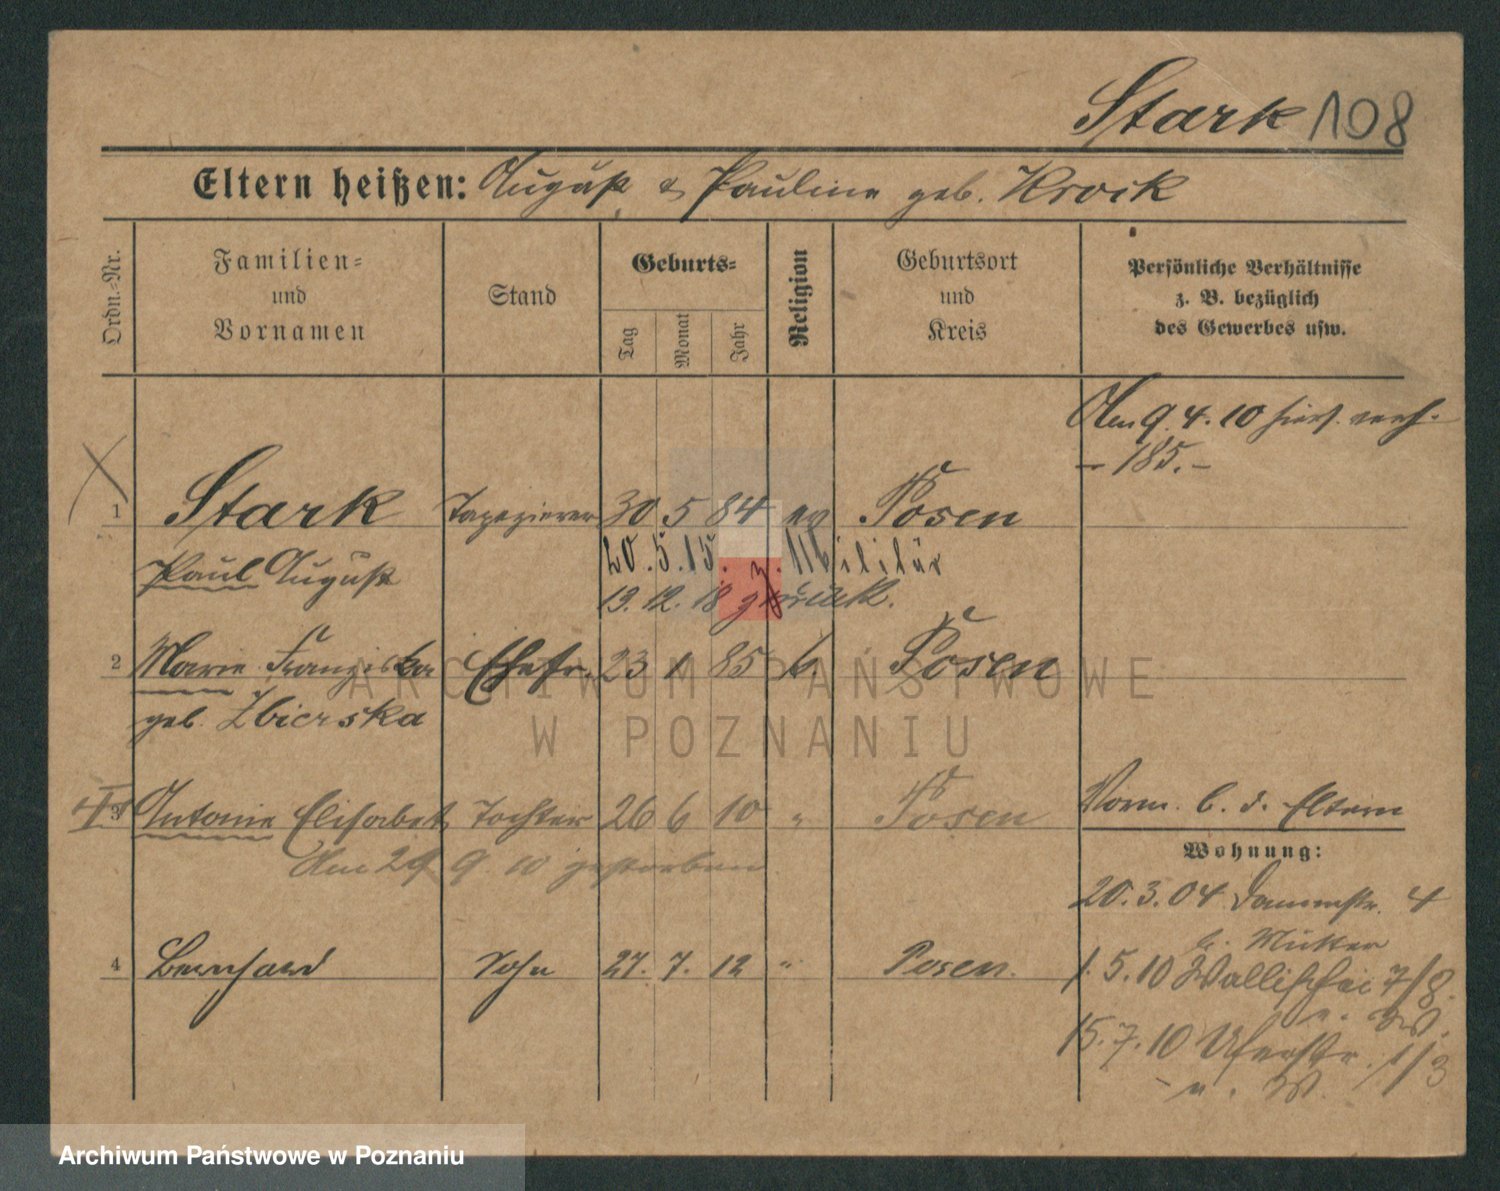 Stark 108
Eltern heißen: August & Pauline geb. Krock
Ordn.-Nr.
Familien- und Vornamen
Stand
Geburts-
Tag
Monat
Jahr
Religion
Geburtsort und Kreis
Persönliche Verhältnisse
z. B. bezüglich
des Gewerbes usw.
Am 9. 4. 10 hier verh.
- 185. -
1 Stark Tapezierer 30 5 84 ev Posen
Paul August 20. 5. 15. z. Militär
19. 12. 18 zurück.
2 Marie Franziska Ehefr. 23 1 85 k. Posen
geb. Zbierska
ARCHIWUM PAŃSTWOWE
W POZNANIU
3 Antonie Elisabet Tochter 26 6 10 " Posen
Am 29 9. 10 gestorben
Vorm. b. d. Eltern
Wohnung:
20. 3. 04 Dammstr. 4
b. Mutter
4 Bernhard Sohn 27. 7. 12 " Posen.
1. 5. 10 Wallischei 7/8.
e. W.
15. 7. 10 Uferstr. 1/3
e. W.
Archiwum Państwowe w Poznaniu